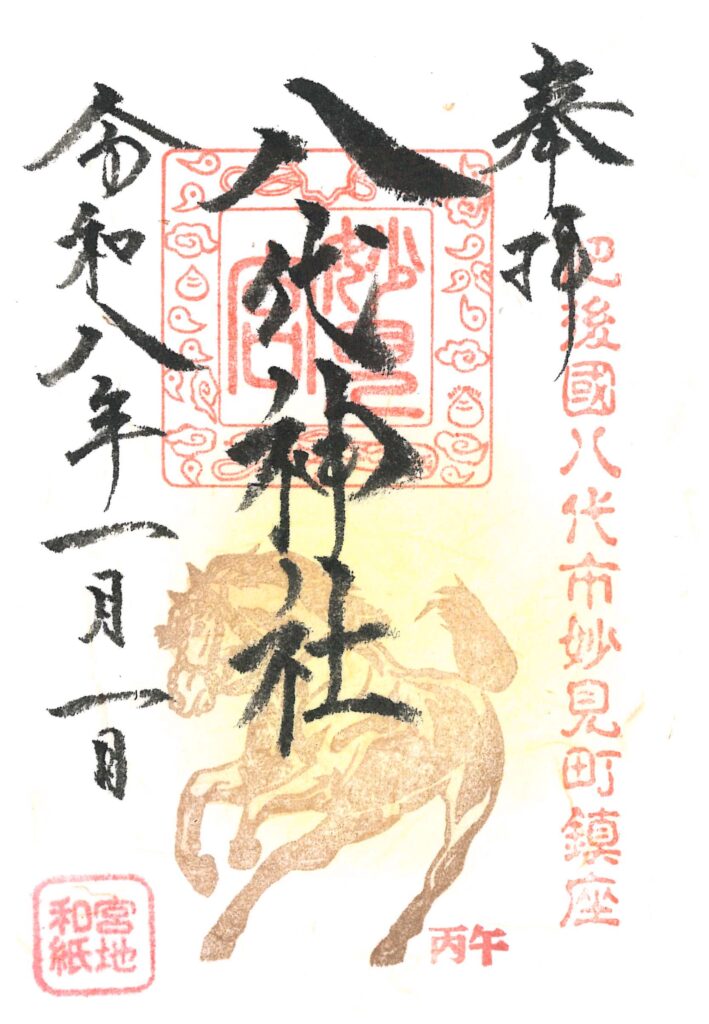 奉拝
肥後國八代市妙見町鎮座
八代神社
妙見宮
令和八年一月一日
丙午
宮地
和紙